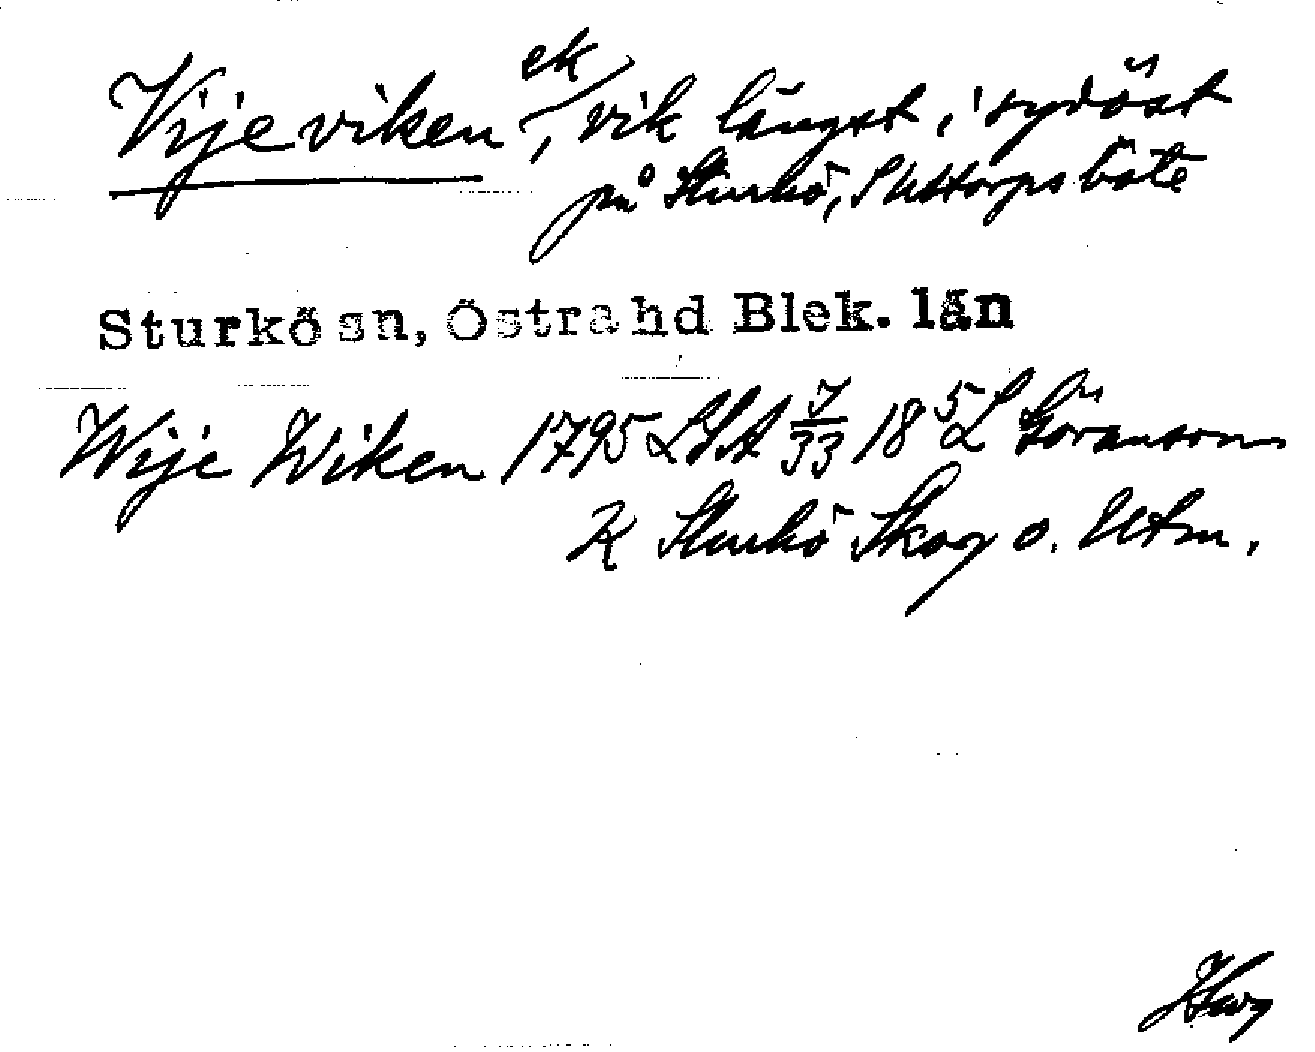 Vijeviken, ek vik längst i sydöst
på Sturkö, S Uttorps böte
Sturkö sn, Östra hd Blek. län
Wije Wiken 1795 LSA J/33 18⁵ L Göransson
K Sturkö Skog o. Utm.